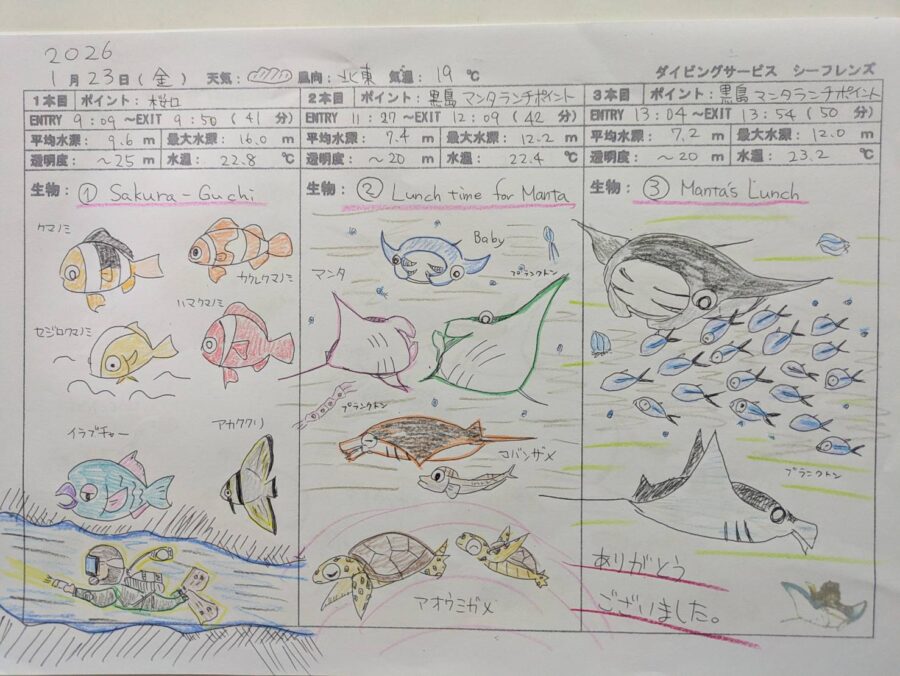 2026
1月23日(金) 天気: 風向:北東 気温:19℃ ダイビングサービス シーフレンズ
1本目 ポイント:桜口
ENTRY 9:09 ~EXIT 9:50 (41 分)
平均水深: 9.6 m 最大水深: 16.0 m
透明度: ~25 m 水温: 22.8 ℃
生物: ① Sakura-Guchi
クマノミ
カクレクマノミ
ハマクマノミ
セジロクマノミ
イラブチャー
アカククリ
2本目 ポイント:黒島 マンタランチポイント
ENTRY 11:27 ~EXIT 12:09 (42 分)
平均水深: 7.4 m 最大水深: 12.2 m
透明度: ~20 m 水温: 22.4 ℃
生物: ② Lunch time for Manta
Baby
マンタ
プランクトン
プランクトン
コバンザメ
アオウミガメ
3本目 ポイント:黒島 マンタランチポイント
ENTRY 13:04 ~EXIT 13:54 (50 分)
平均水深: 7.2 m 最大水深: 12.0 m
透明度: ~20 m 水温: 23.2 ℃
生物: ③ Manta's Lunch
プランクトン
ありがとう
ございました。